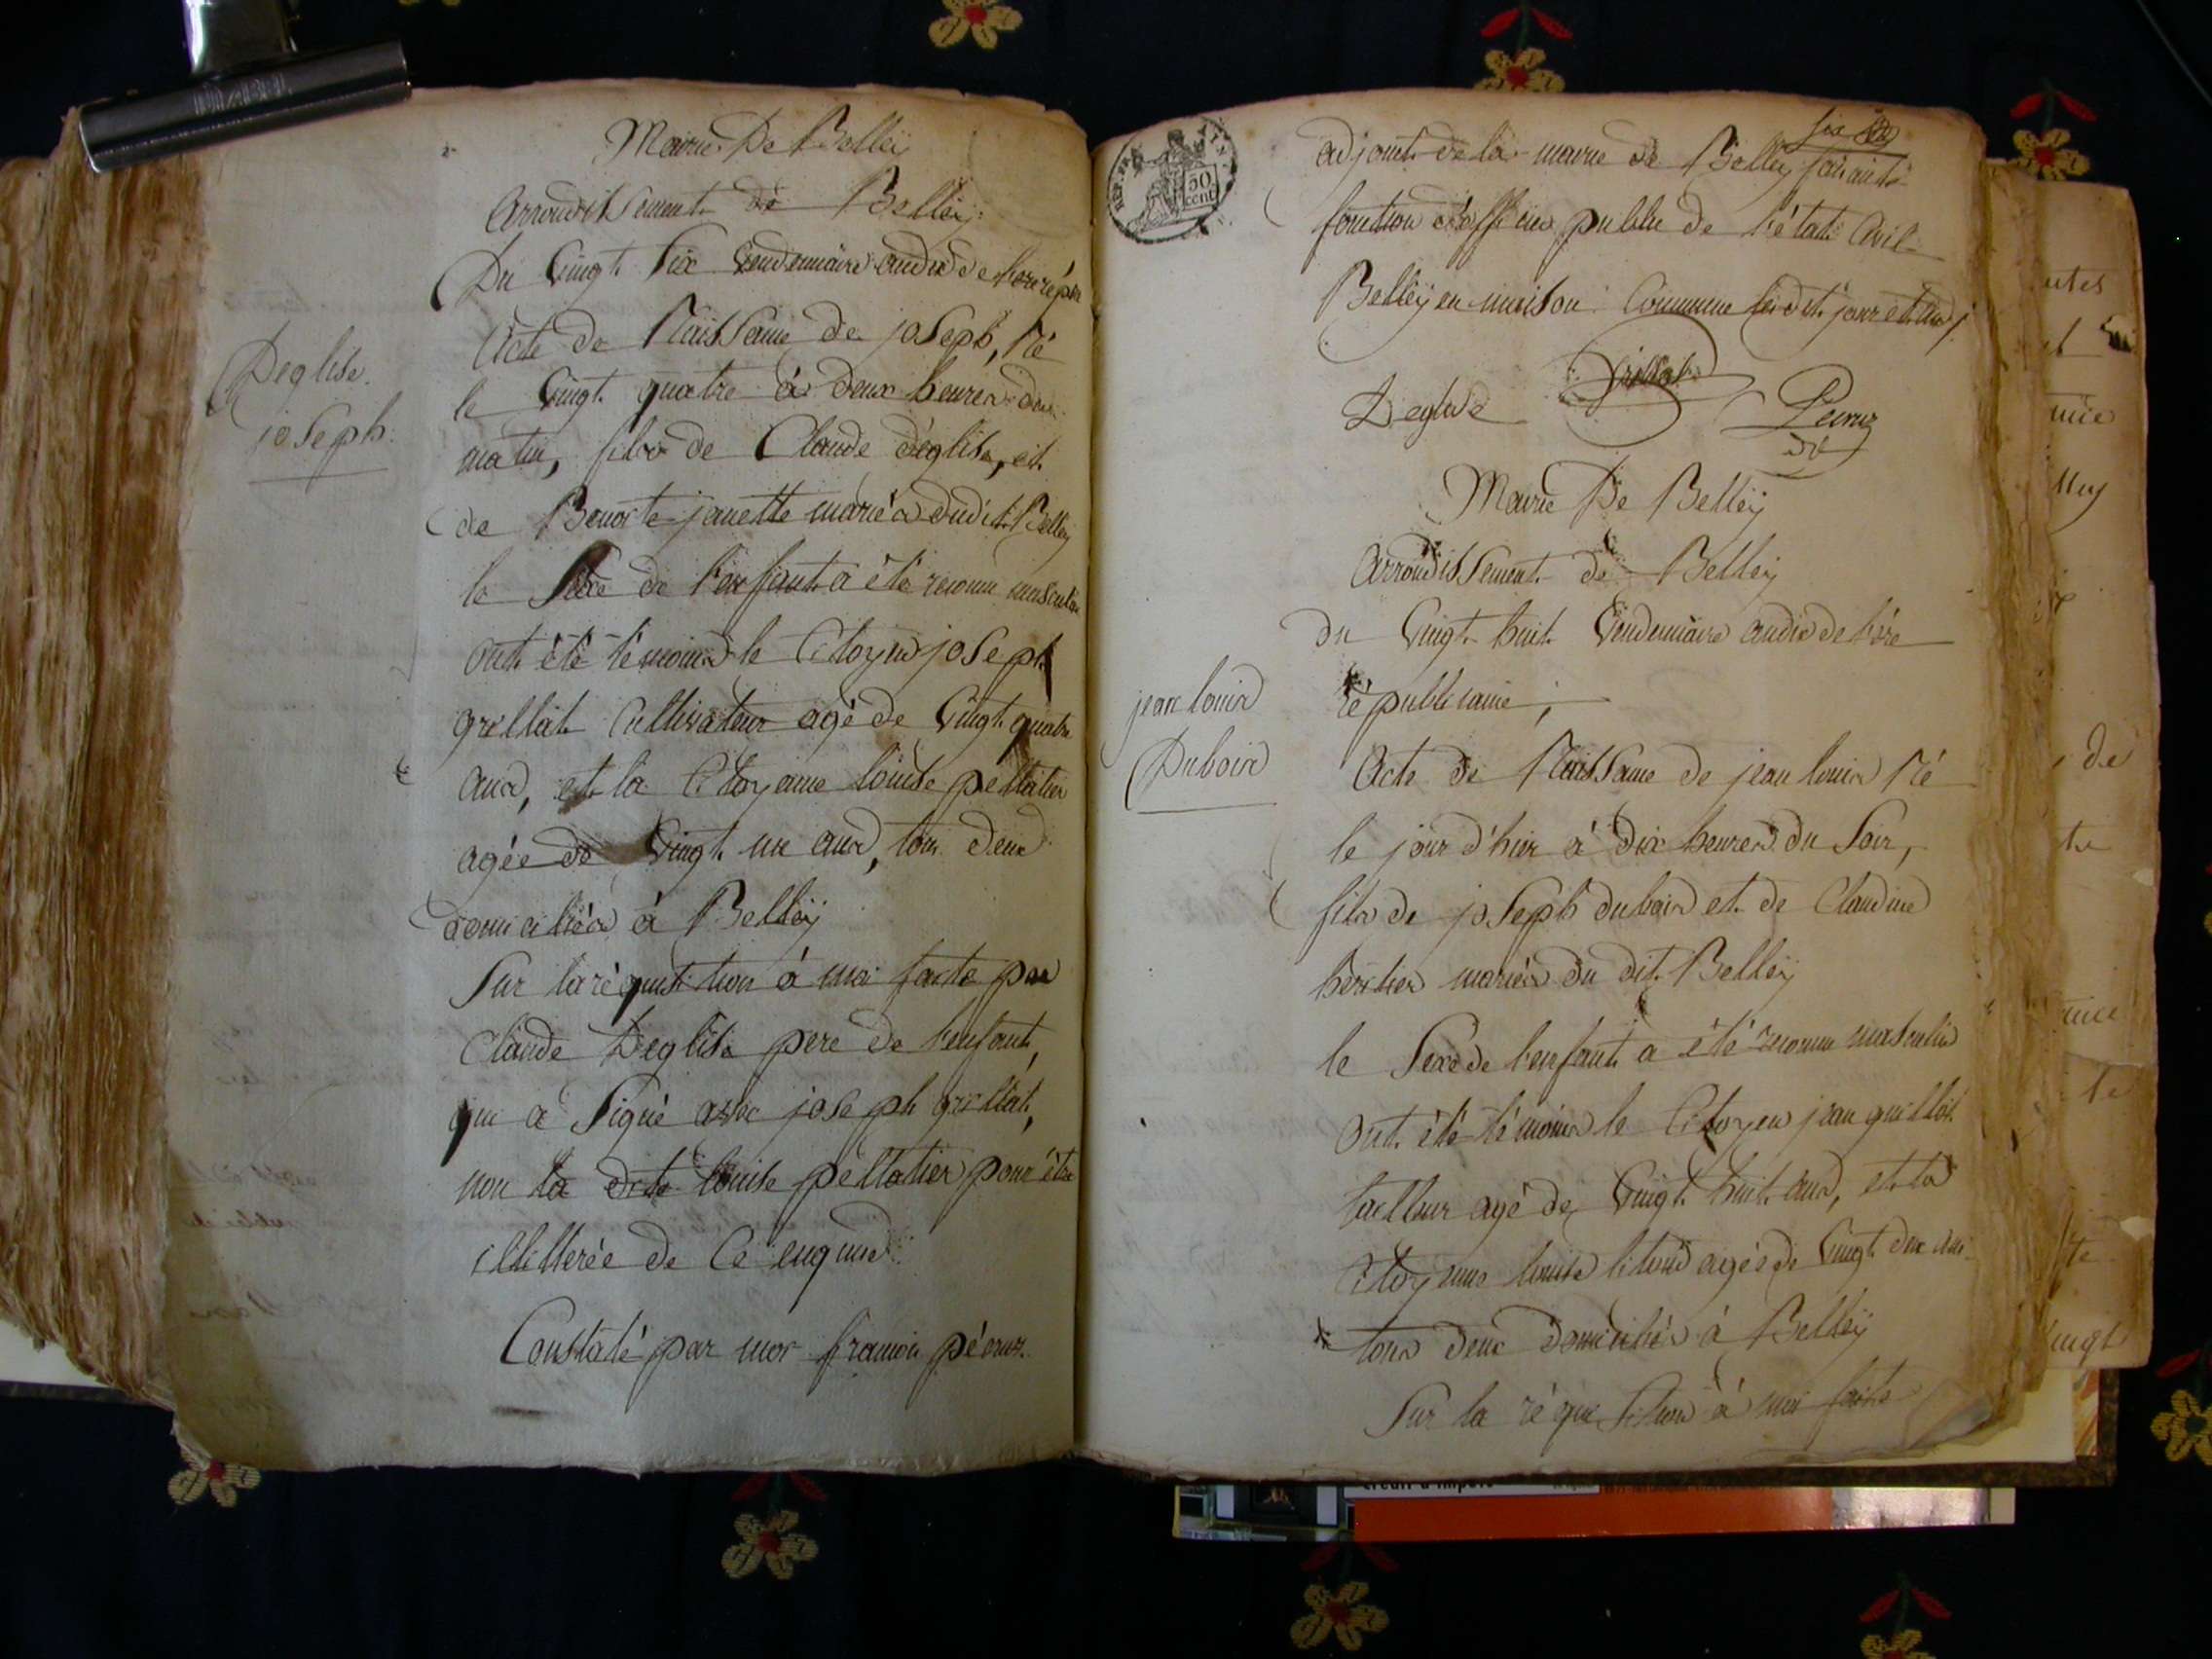 Mairie De Belleÿ
Arrondissement de Belleÿ
Du Vingt Six Vendemiaire an dix de l'ere répu
Acte de Naissance de joseph, Né
le Vingt quatre à deux heures du
matin, fils de Claude déglise, et
de Benoite janette mariés dudit Belley
le Sexe de l'enfant a été reconnu masculin
ont été témoins le Citoyen joseph
grillat Cultivateur agé de Vingt quatre
ans, et la Citoyenne louise pellatier
agée de Vingt un ans, tous deux
domiciliés à Belleÿ
Sur la réquisition à moi faite par
Claude Déglise pere de l'enfant,
qui a Signé avec joseph grillat,
non la dite louise pellatier pour être
illitterée de Ce enquise
Constaté par moi françois pécruz
Déglise
joseph
six
REP. FRA.
50
cent
adjoint de la mairie de Belley faisant
fonction d'officier public de l'état Civil
Belleÿ en maison Commune les dits jour et an
Deglise
Grillat
Pecruz
Mairie De Belleÿ
Arrondissement de Belleÿ
du Vingt huit Vendemiaire an dix de l'ére
républicaine ;
Acte de Naissance de jean louis Né
le jour d'hier à dix heures du Soir,
fils de joseph dubois et de Claudine
heritier mariés du dit Belleÿ
le Sexe de l'enfant a été reconnu masculin
ont été témoins le Citoyen jean guillot
tailleur agé de Vingt huit ans, et la
Citoyenne louise agée de Vingt deux ans
tous deux domiciliés à Belleÿ
Sur la réquisition à moi faite
jean louis
Dubois